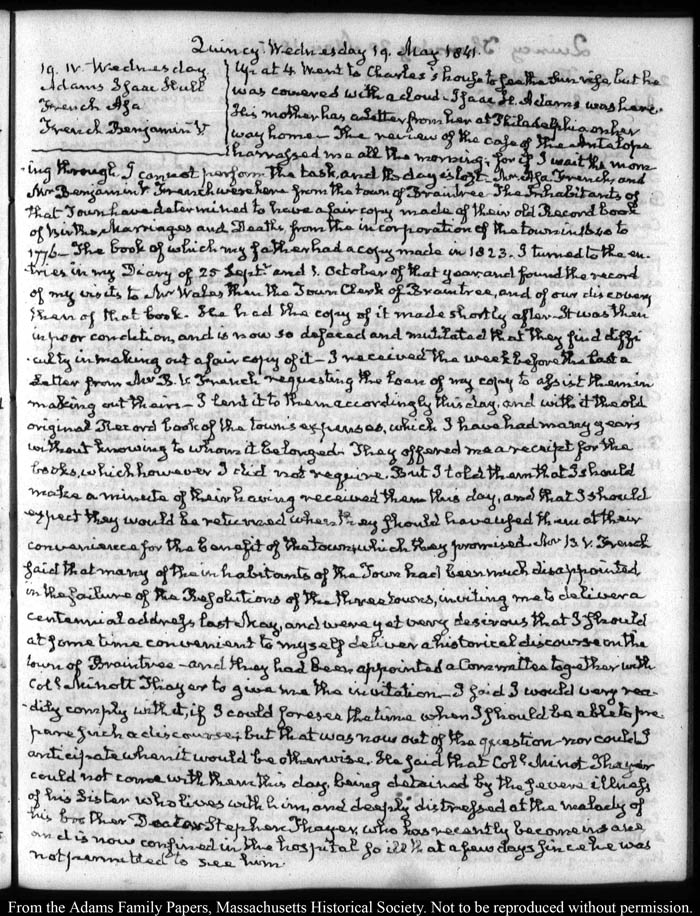 Quincy Wednesday 19. May 1841.
19. IV. Wednesday
Adams Isaac Hull
French Asa
French Benjamin V
Up at 4. Went to Charles's house to see the Sun rise, but he
was covered with a cloud. Isaac H. Adams was here.
His mother has a Letter from her at Philadelphia on her
way home — The review of the case of the Antelope
harrassed me all the morning; for if I wait the morn-
ing through I cannot perform the task, and the day is lost. Mr. Asa French, and
Mr. Benjamin V. French were here from the town of Braintree. The Inhabitants of
that Town have determined to have a fair copy made of their old Record book
of Births, Marriages and Deaths from the incorporation of the town in 1640 to
1776 — The book of which my father had a copy made in 1823. I turned to the en-
tries in my Diary of 25 Septr. and 3. October of that year and found the record
of my visits to Mr Wales then the Town Clerk of Braintree, and of our discovery
then of that book. He had the copy of it made shortly after. It was then
in poor condition, and is now so defaced and mutilated that they find diffi-
culty in making out a fair copy of it — I received the week before the last a
Letter from Mr. B. V. French requesting the loan of my copy to assist them in
making out theirs — I lent it to them accordingly this day, and with it the old
original Record book of the town's expenses, which I have had many years
without knowing to whom it belonged. They offered me a receipt for the
books, which however I did not require. But I told them that I should
make a minute of their having received them this day, and that I should
expect they would be returned when they should have used them at their
convenience for the benefit of the town; which they promised. Mr B. V. French
said that many of the inhabitants of the Town had been much disappointed
in the failure of the Resolutions of the three towns, inviting me to deliver a
centennial address last May, and were yet very desirous that I should
at some time convenient to myself deliver a historical discourse on the
town of Braintree — and they had been appointed a Committee together with
Coll. Minott Thayer to give me the invitation — I said I would very rea-
dily comply with it, if I could foresee the time when I should be able to pre
pare such a discourse; but that was now out of the question nor could I
anticipate when it would be otherwise. He said that Coll. Minot Thayer
could not come with them this day, being detained by the severe illness
of his Sister who lives with him, and deeply distressed at the malady of
his brother Doctor Stephen Thayer, who has recently become insane
and is now confined in the hospital so ill that a few days since he was
not permitted to see him.
From the Adams Family Papers, Massachusetts Historical Society. Not to be reproduced without permission.